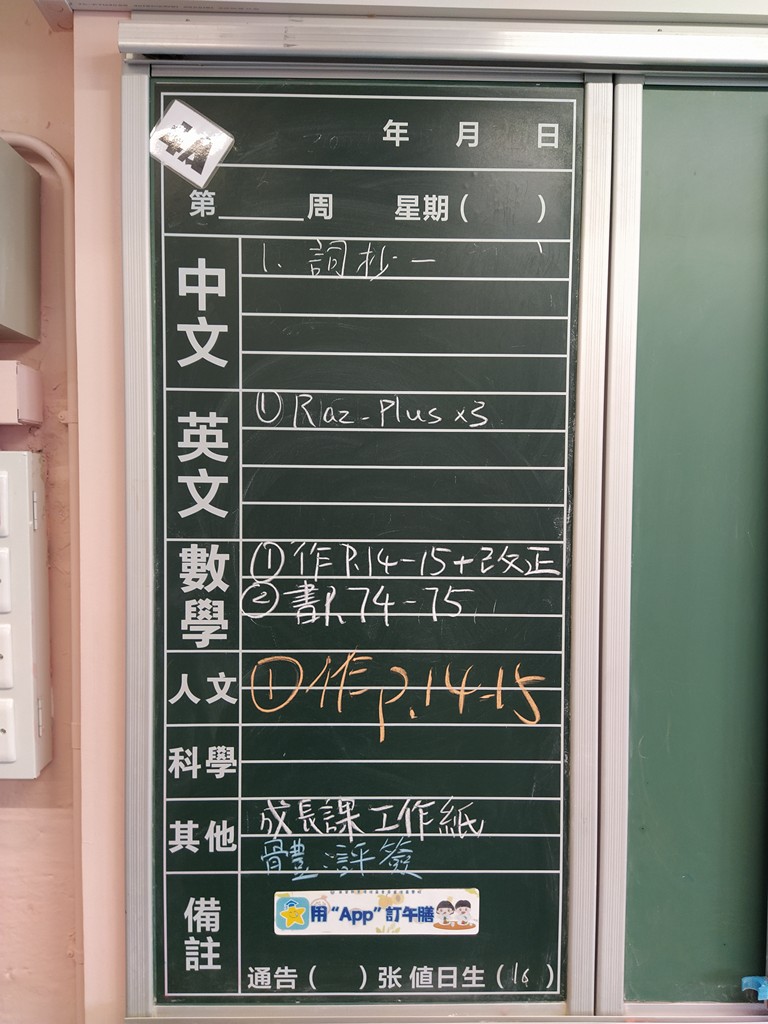 4A
年 月 日
第____周 星期( )
中文
1. 詞抄一
英文
① Raz-Plus x3
數學
① 作P.14-15+改正
② 書P.74-75
人文
① 作p.14-15
科學
其他
成長課工作紙
體評簽
備註
用“App”訂午膳
通告( )张 值日生(16)